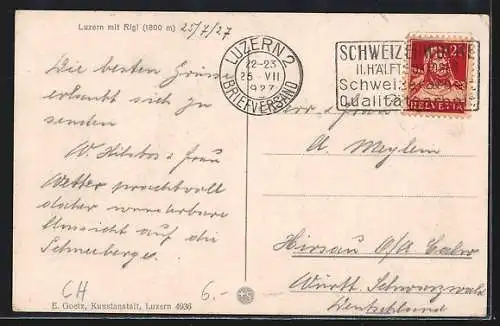 Luzern mit Rigi (1800 m) 25/7/27
Die besten Grüsse
erlaubt sich zu
senden
W. & Frau
Wetter prachtvoll
daher wunderbare
Aussicht auf die
Schneeberge.
CH 6.-
E. Goetz, Kunstanstalt, Luzern 4936
LUZERN 2
22-23
25. VII
1927
BRIEFVERSAND
SCHWEIZ
II. HÄLFT
Schweiz
Qualitä
25
HELVETIA
Herr & Frau
A. Meylem
Hirsau b/ Calw
Württ. Schwarzwald
Deutschland